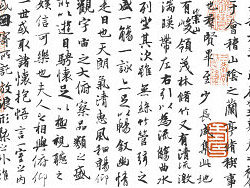 于會稽山陰之蘭亭脩禊事
羣賢畢至少長咸集此地
領茂林脩竹又有清流激
湍暎帶左右引以為流觴曲
列坐其次雖無絲竹管弦之
一觴一詠亦足以暢敘幽情
是日也天朗氣清惠風和暢仰
觀宇宙之大俯察品類之盛
以遊目騁懷足以極視聽之
娛信可樂也夫人之相與俯仰
一世或取諸懷抱悟言一室之內
因寄所託放浪形骸之外雖